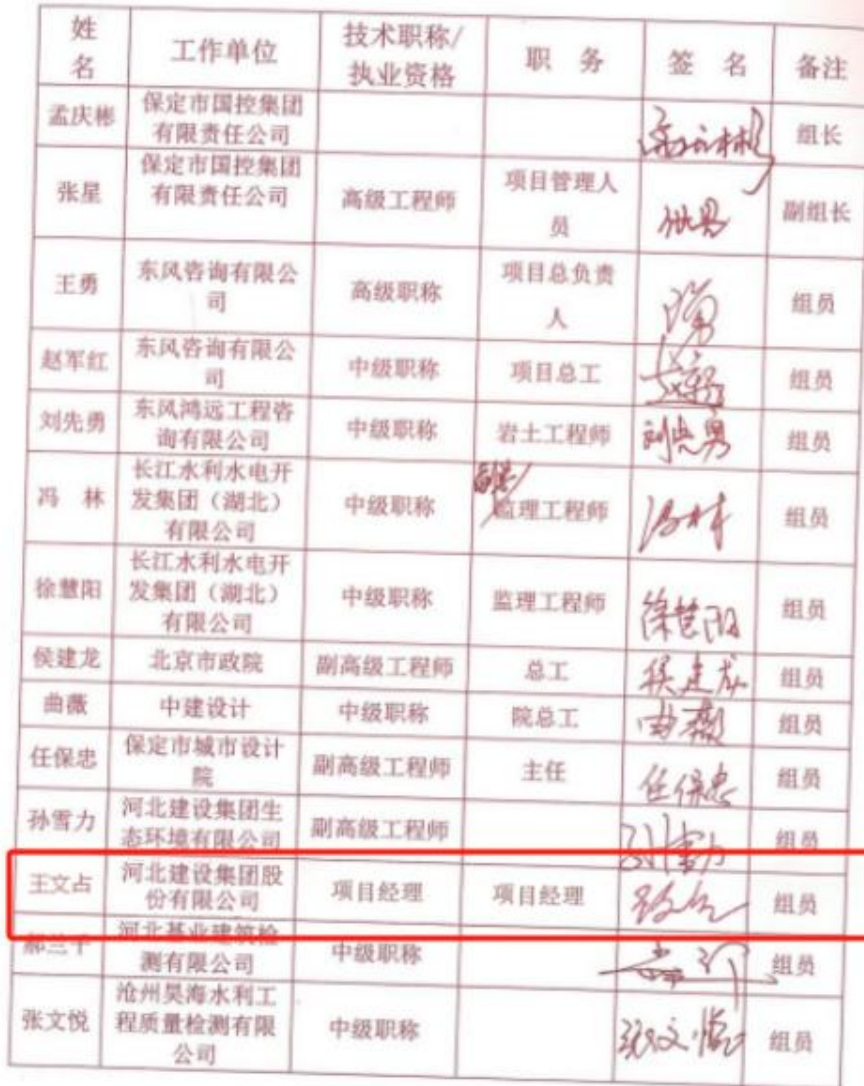 姓名 工作单位 技术职称/执业资格 职 务 签 名 备注
孟庆彬 保定市国控集团有限责任公司 组长
张星 保定市国控集团有限责任公司 高级工程师 项目管理人员 副组长
王勇 东风咨询有限公司 高级职称 项目总负责人 组员
赵军红 东风咨询有限公司 中级职称 项目总工 组员
刘先勇 东风鸿远工程咨询有限公司 中级职称 岩土工程师 刘先勇 组员
冯 林 长江水利水电开发集团(湖北)有限公司 中级职称 监理工程师 冯林 组员
徐慧阳 长江水利水电开发集团(湖北)有限公司 中级职称 监理工程师 徐慧阳 组员
侯建龙 北京市政院 副高级工程师 总工 侯建龙 组员
曲薇 中建设计 中级职称 院总工 曲薇 组员
任保忠 保定市城市设计院 副高级工程师 主任 任保忠 组员
孙雪力 河北建设集团生态环境有限公司 副高级工程师 组员
王文占 河北建设集团股份有限公司 项目经理 项目经理 组员
郝兰千 河北基业建筑检测有限公司 中级职称 组员
张文悦 沧州昊海水利工程质量检测有限公司 中级职称 张文悦 组员